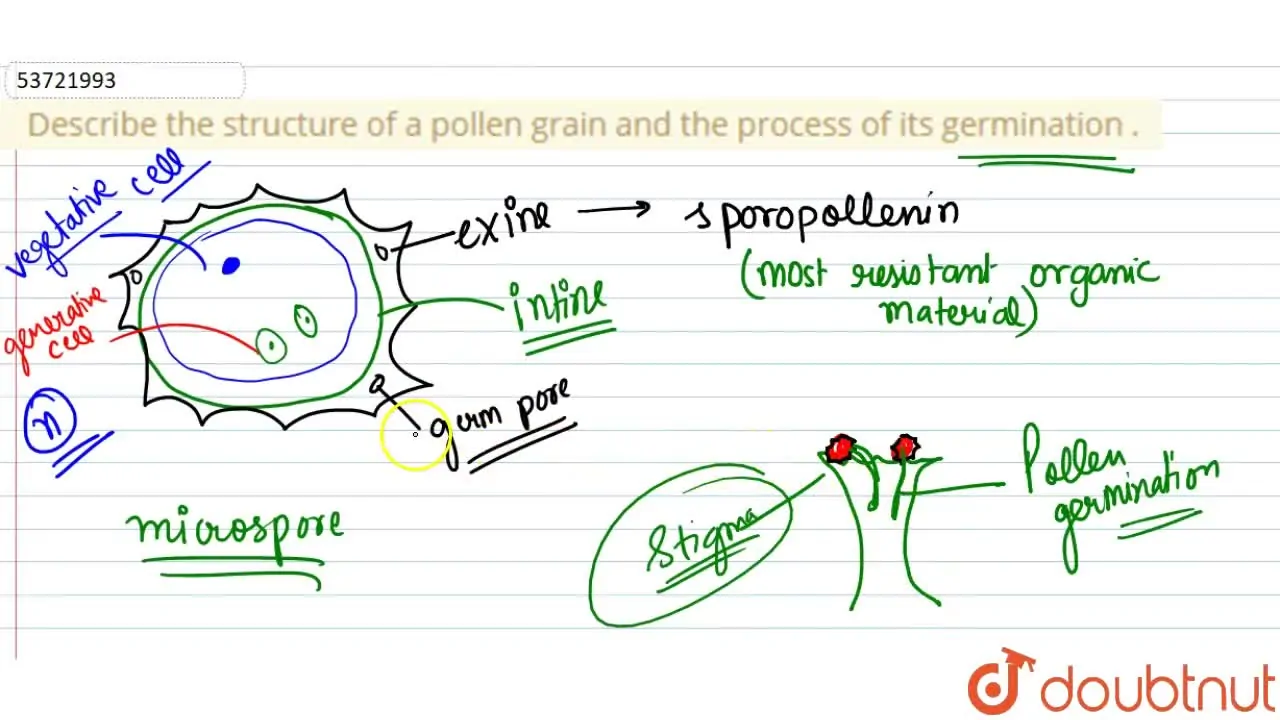 53721993
Describe the structure of a pollen grain and the process of its germination .
vegetative cell
exine → sporopollenin
(most resistant organic
material)
intine
generative
cell
n
germ pore
Pollen
germination
Stigma
microspore
doubtnut